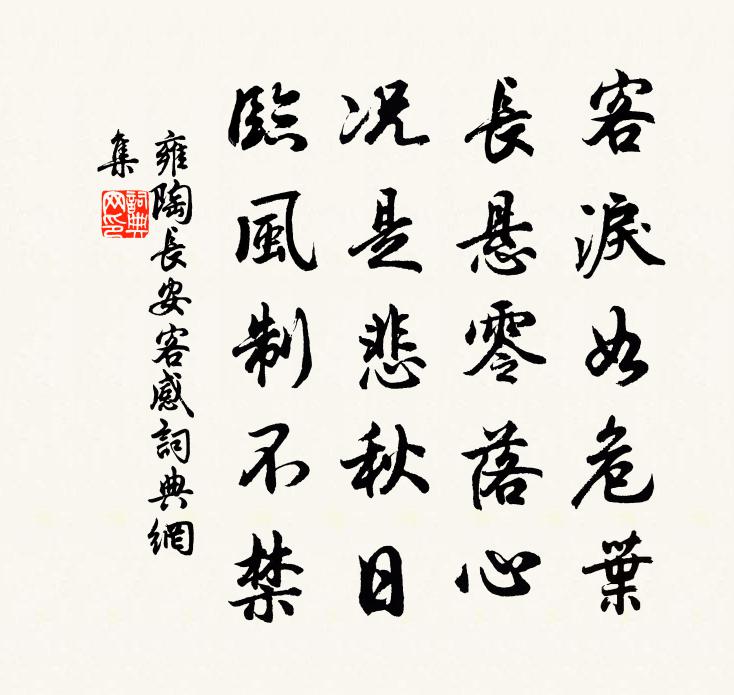 客淚如危葉
長悬零落心
况是悲秋日
臨風制不禁
雍陶長安客感詞典網
集
詞典
网印